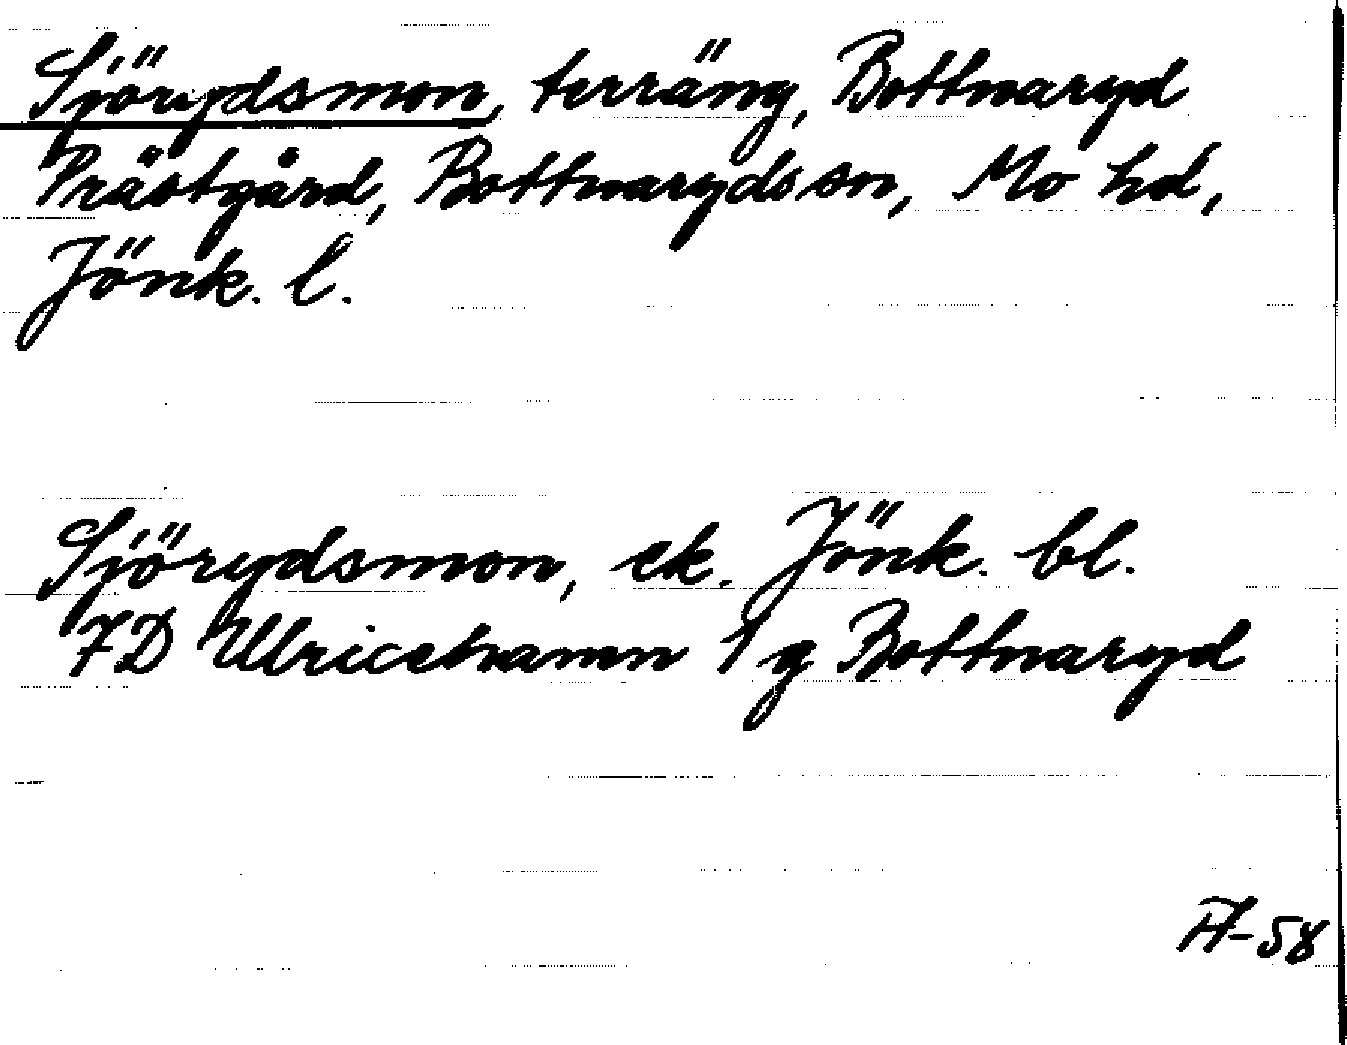 Sjörydsmon, terräng, Bottnaryd
Prästgård, Bottnaryds sn, Mo hd,
Jönk. l.
Sjörydsmon, ek. Jönk. bl.
7D Ulricehamn 1 g Bottnaryd
-58